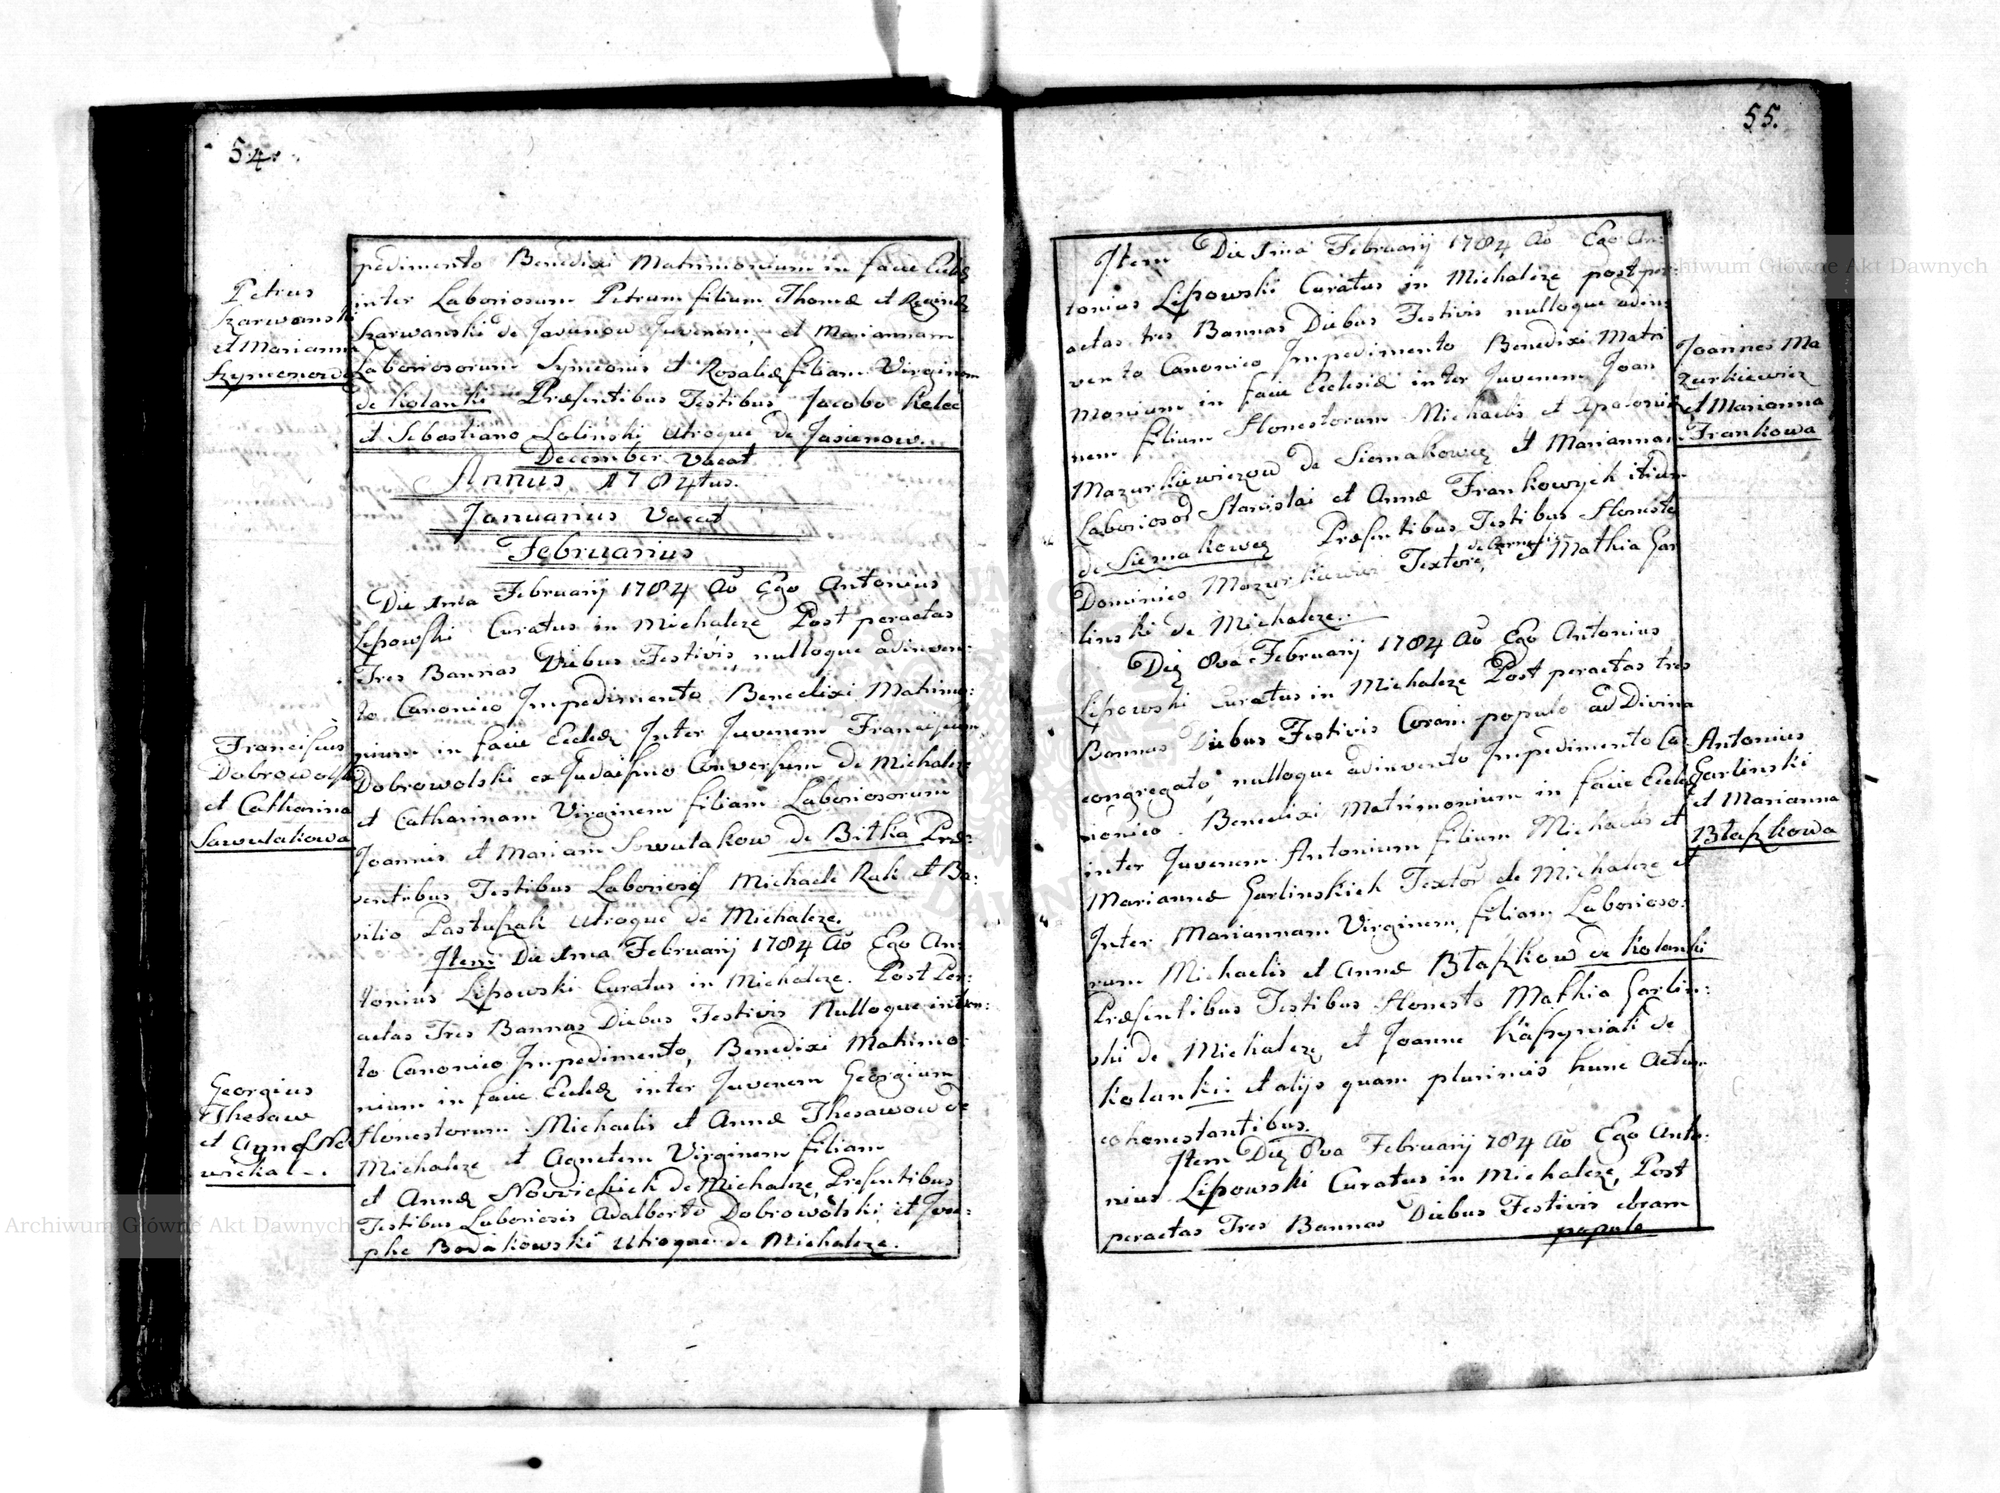 54.
Petrus
Karwanski
et Marianna
Szymonowda
pedimento Benedixi Matrimonium in facie Eccl̃æ
inter Laboriosum Petrum filium Thomæ et Reginæ
Karwanski de Jasionow Juvenem, et Mariannam
Laboriosorum Symeonis et Rosaliæ filiam Virginem
de Kolanki Præsentibus Testibus Jacobo Kelec
et Sebastiano Lolinski utroque de Jasienow.
December Vacat
Annus 1784tus.
Januarius Vacat
Februarius
Franciscus
Dobrowolski
et Catharina
Sawulakowa
Die 1ma Februarij 1784 Aõ Ego Antonius
Lipowski Curatus in Michalcze Post peractas
Tres Bannas Diebus Festivis, nulloque adinven:
to Canonico Impedimento Benedixi Matrimo:
nium in facie Eccl̃æ Inter Juvenem Franciscum
Dobrowolski ex Judaismo Conversum de Michalcze
et Catharinam Virginem filiam Laboriosorum
Joannis et Mariam Sowulakow de Bitka Præ:
sentibus Testibus Laboriosis Michaele Rak et Ba:
silio Pastuszak utroque de Michalcze.
Georgius
Thesaw
et Agnes No
wickal -.
Item Die 1ma Februarij 1784 Aõ Ego An:
tonius Lipowski Curatus in Michalcze. Post Per:
actas Tres Bannas Diebus Festivis Nulloque inven:
to Canonico Impedimento, Benedixi Matrimo:
nium in facie Eccl̃æ inter Juvenem Georgium
Honestorum Michaelis et Annæ Thesawow de
Michalcze et Agnetem Virginem filiam
et Annæ Nowickich de Michalcze, Presentibus
Testibus Laboriosis Adalberto Dobrowolski et Jose:
pho Bodakowski utroque de Michalcze.
55.
Item Die 1ma Februarij 1784 Aõ Ego An:
tonius Lipowski Curatus in Michalcze post per:
actas tres Bannas Diebus Festivis nulloque adin:
vento Canonico Impedimento Benedixi Matri
monium in facie Ecclesiæ inter Juvenem Joan
nem filium Honestorum Michaelis et Apoloniæ
Mazurkiewiczow de Siemakowce et Mariannam
Laboriosoȓ Stanislai et Annæ Frankowych itidem
de Siemakowce Præsentibus Testibus Honesto
Dominico Mazurkiewicz Textore, et Mathia Gar
linski de Michalcze.
Joannes Ma
zurkiewicz
et Marianna
Frankowa
Die 8va Februarij 1784 Aõ Ego Antonius
Lipowski Curatus in Michalcze Post peractas tres
Bannas Diebus Festivis Coram populo ad Divina
congregato, nulloque adinvento Impedimento Ca:
nonico. Benedixi Matrimonium in facie Eccl̃æ
inter Juvenem Antonium filium Michaelis et
Mariannæ Garlinskich Textoȓ de Michalcze et
Inter Mariannam Virginem filiam Laborioso:
rum Michaelis et Annæ Błaszkow de Kolanki
Præsentibus Testibus Honesto Mathia Garlin:
ski de Michalcze et Joanne Kaszyniak de
Kolanki et alijs quam plurimis hunc Actum
cohonestantibus.
Antonius
Garlinski
et Marianna
Błaszkowa
Item Die 8va Februarij 784 Aõ Ego Anto:
nius Lipowski Curatus in Michalcze, Post
peractas Tres Bannas Diebus Festivis coram
populo
Archiwum Główne Akt Dawnych
Archiwum Główne Akt Dawnych